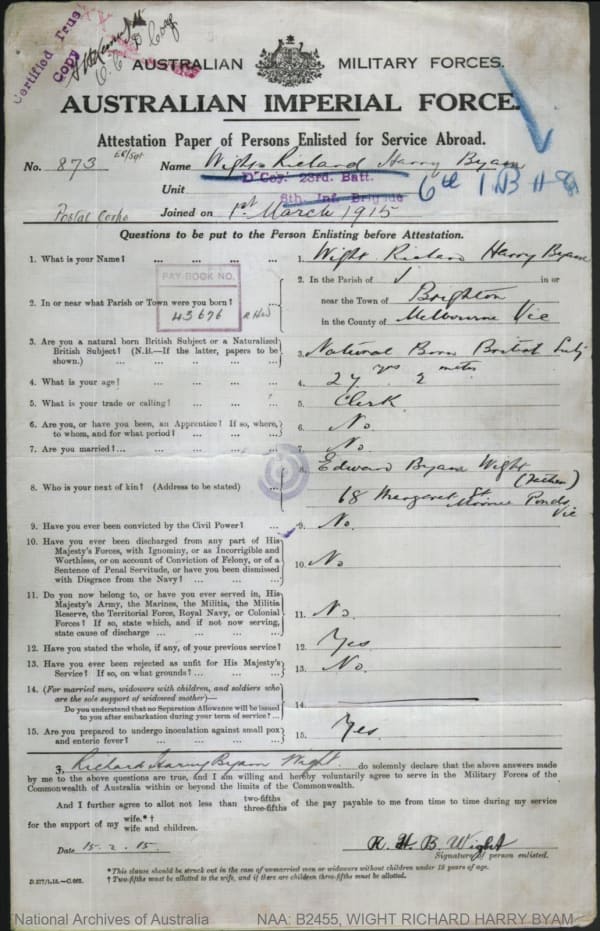 Certified True
Copy
AUSTRALIAN MILITARY FORCES.
AUSTRALIAN IMPERIAL FORCE.
Attestation Paper of Persons Enlisted for Service Abroad.
No. 873 ER/Sgt Name Wight Richard Harry Byam
Unit D Coy. 23rd. Batt.
6th. Inf. Brigade 6th I.B H Q
Postal Corps Joined on 1st March 1915
Questions to be put to the Person Enlisting before Attestation.
1. What is your Name? ... ... ... ... 1. Wight Richard Harry Byam
PAY BOOK NO.
43676
2. In or near what Parish or Town were you born? ... 2. In the Parish of in or
near the Town of Brighton
in the County of Melbourne Vic
3. Are you a natural born British Subject or a Naturalized
British Subject? (N.B.—If the latter, papers to be
shown.) ... ... ... ... 3. Natural Born British Subj
4. What is your age? ... ... ... 4. 27 yrs 2 mths
5. What is your trade or calling? ... ... ... 5. Clerk
6. Are you, or have you been, an Apprentice? If so, where,
to whom, and for what period? ... ... ... 6. No
7. Are you married? ... ... ... ... 7. No
8. Who is your next of kin? (Address to be stated) ... 8. Edward Byam Wight
(Father)
68 Margaret St
Moonee Ponds
Vic
9. Have you ever been convicted by the Civil Power? ... 9. No.
10. Have you ever been discharged from any part of His
Majesty's Forces, with Ignominy, or as Incorrigible and
Worthless, or on account of Conviction of Felony, or of a
Sentence of Penal Servitude, or have you been dismissed
with Disgrace from the Navy? ... ... ... 10. No
11. Do you now belong to, or have you ever served in, His
Majesty's Army, the Marines, the Militia, the Militia
Reserve, the Territorial Force, Royal Navy, or Colonial
Forces? If so, state which, and if not now serving,
state cause of discharge ... ... ... 11. No.
12. Have you stated the whole, if any, of your previous service? 12. Yes
13. Have you ever been rejected as unfit for His Majesty's
Service? If so, on what grounds? ... ... 13. No.
14. (For married men, widowers with children, and soldiers who
are the sole support of widowed mother)—
Do you understand that no Separation Allowance will be issued
to you after embarkation during your term of service? ... 14.
15. Are you prepared to undergo inoculation against small pox
and enteric fever? ... ... ... 15. Yes.
I, Richard Harry Byam Wight do solemnly declare that the above answers made
by me to the above questions are true, and I am willing and hereby voluntarily agree to serve in the Military Forces of the
Commonwealth of Australia within or beyond the limits of the Commonwealth.
And I further agree to allot not less than two-fifths three-fifths of the pay payable to me from time to time during my service
for the support of my wife.*† wife and children.
Date 15. 2. 15. R. H. B. Wight
Signature of person enlisted.
*This clause should be struck out in the case of unmarried men or widowers without children under 18 years of age.
† Two-fifths must be allotted to the wife, and if there are children three-fifths must be allotted.
National Archives of Australia NAA: B2455, WIGHT RICHARD HARRY BYAM